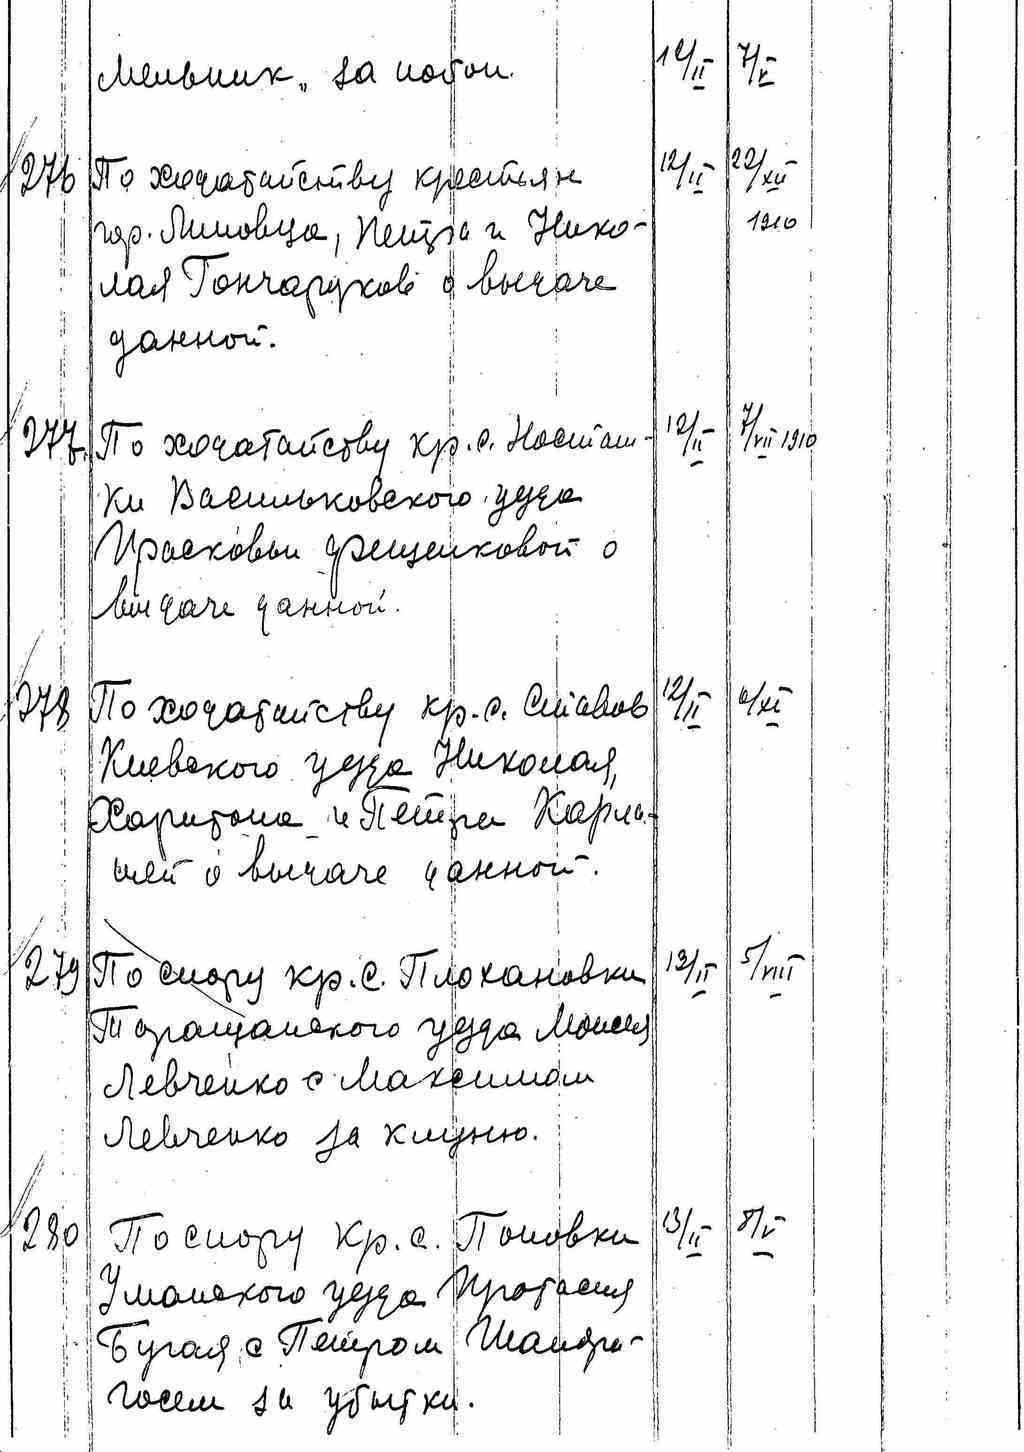 Мельник, за побои. 12/II 7/V
276 По ходатайству крестьян 12/II 22/XII
гор. Липовца, Петра и Нико- 1910
лая Гончаруков о выдаче
данной.
277. По ходатайству кр. с.Носташ- 12/II 7/VII 1910
ки Васильковского уезда
Прасковьи Грещенковой о
выдаче данной.
278 По ходатайству кр. с. Ставов 12/II 6/XI
Киевского уезда Николая,
Харитона и Петра Карлы-
шей о выдаче данной.
279 По спору кр. с. Плохановки 13/II 5/VIII
Таращанского уезда Моисея
Левченко с Максимом
Левченко за клуню.
280 По спору кр. с. Поповки 13/II 8/V
Уманского уезда Протасия
Бугая с Петром Шандри-
госем за убытки.